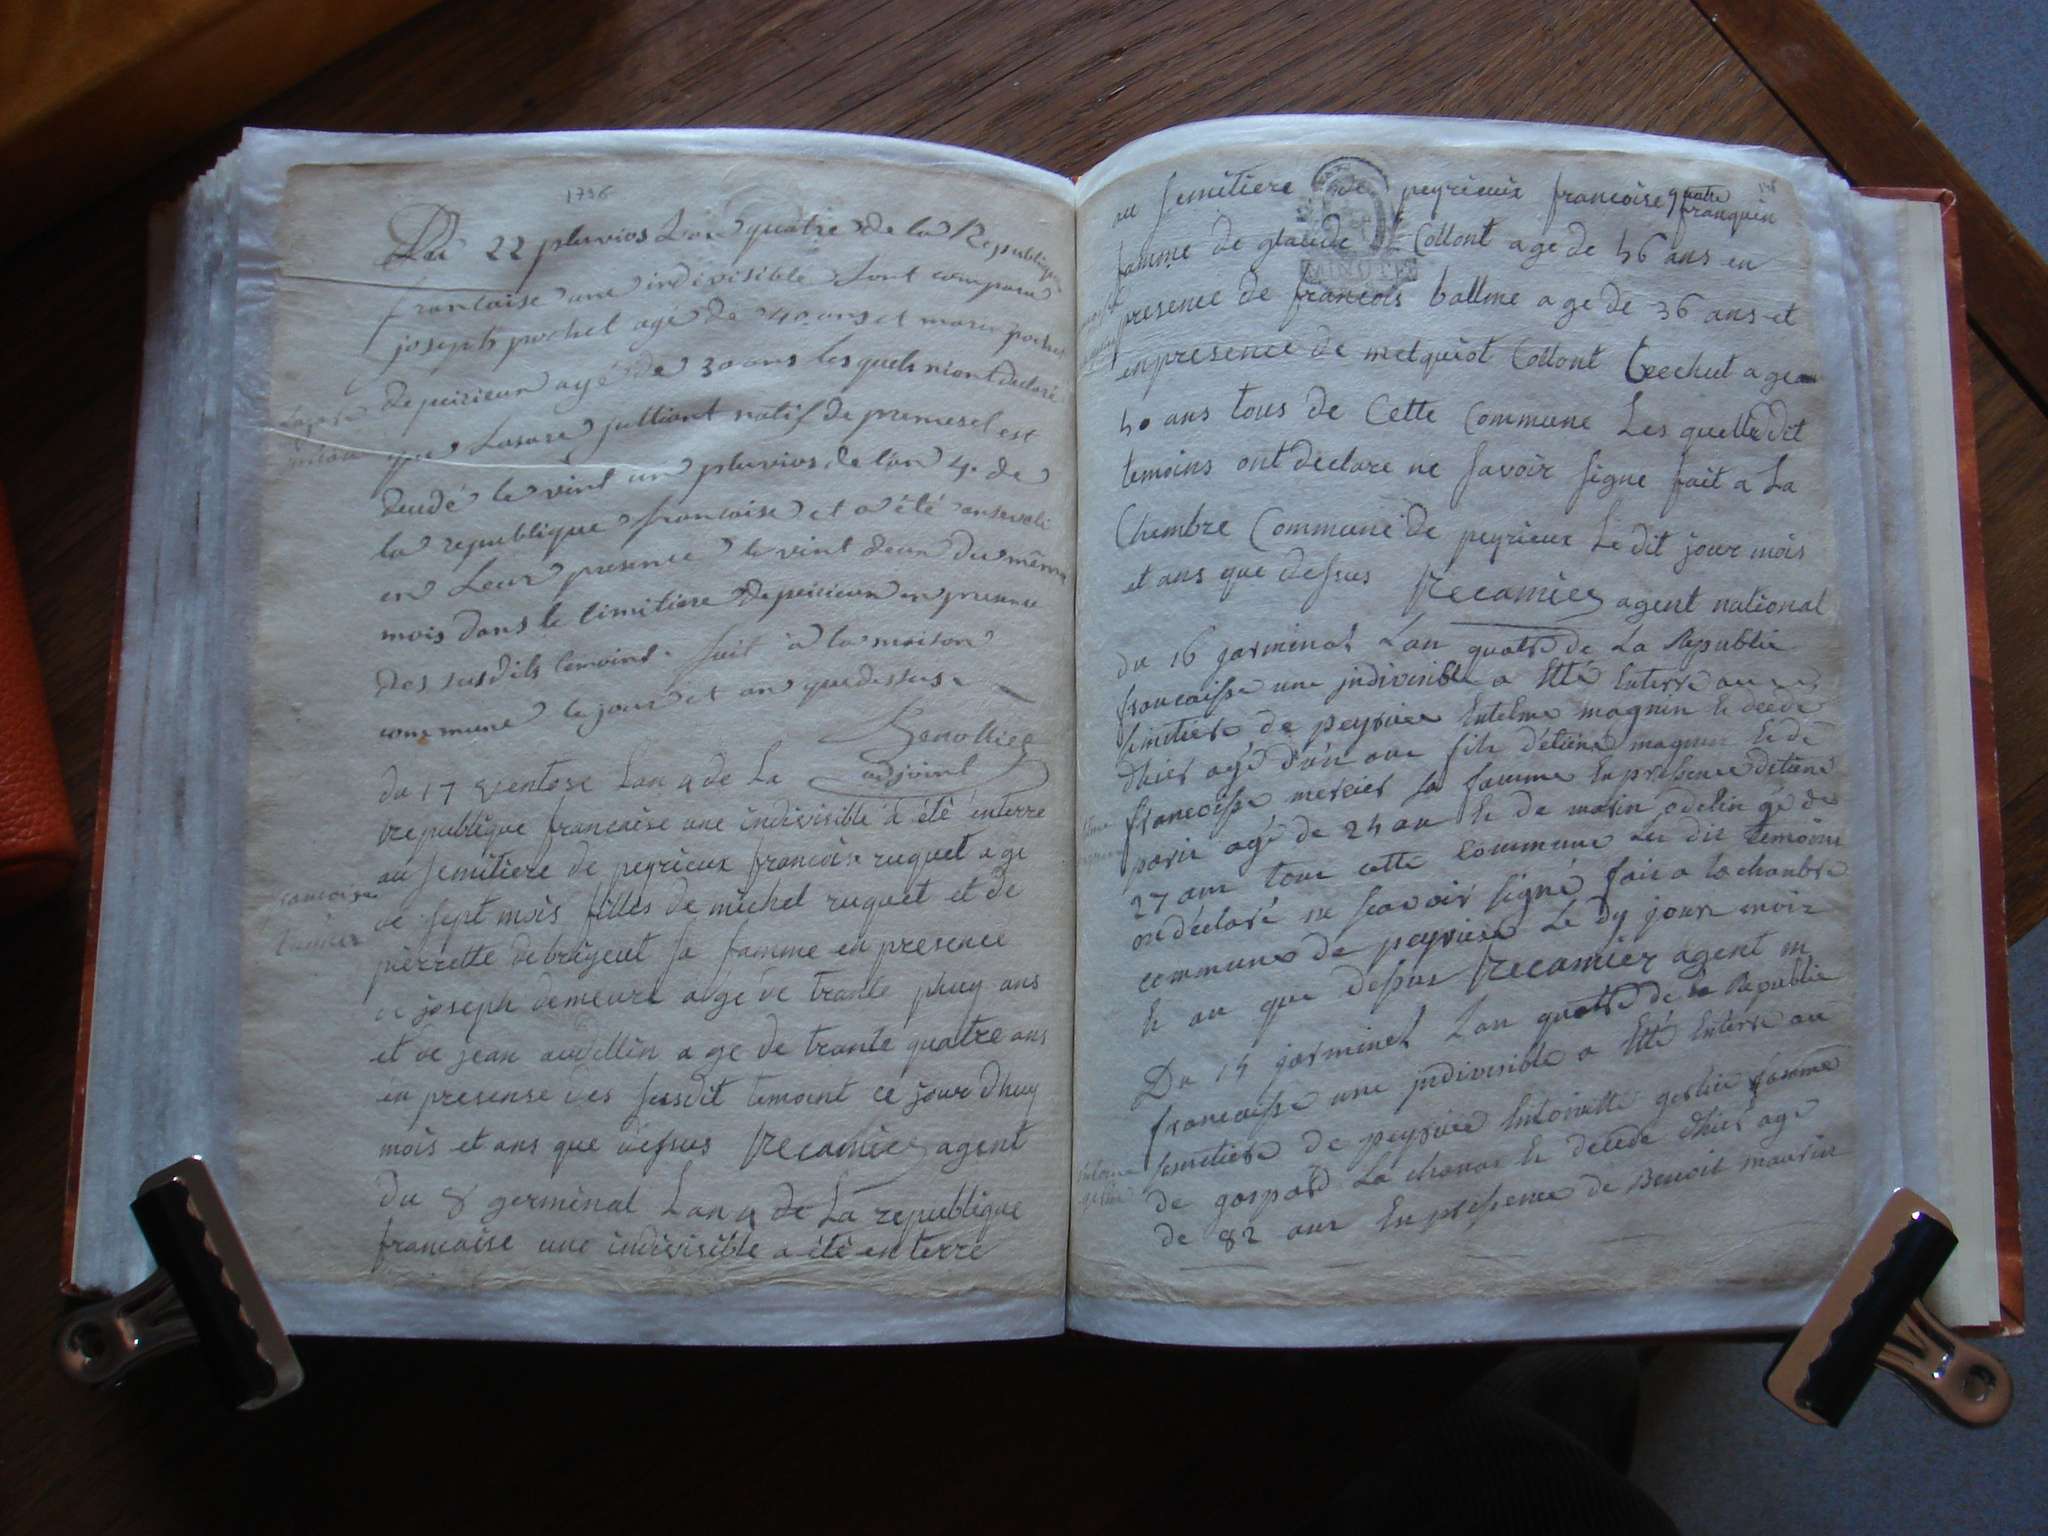 1796
Du 22 pluvios Lan quatre de la Republique
francaise une indivisible sont comparu
joseph pochet age de 40 ans et marin pochet
depeirieux agé de 30 ans les quels mont declaré
que Lasare julliant natif de premesel est
decedé le vint un pluvios de l'an 4. de
la republique francaise et a été enseveli
en Leur presence le vint deux du même
mois dans le cimitiere depeirieux en presence
des susdits temoins. fait à la maison
commune le jour et an que dessus.
adjoint
du 17 ventose Lan 4 de La
republique francaise une indivisible a été enterre
au semitiere de peyrieux francoise ruquet age
de sept mois filles de michel ruquet et de
pierrette debrageut sa famme en presence
de joseph demeure agé de trante phuy ans
et de jean audellin age de trante quatre ans
en presense des susdit temoint ce jour dhuy
mois et ans que dessus Recamier agent
du 8 germinal Lan 4 de La republique
francaise une indivisible a été enterre
au semitiere de peyrieux francoise quatre
franquin
MINUTE
famme de glaude Collont age de 46 ans en
presence de francois ballme age de 36 ans et
en presence de melquiot Collont Cechut age
40 ans tous de Cette Commune Les quelle dit
temoins ont declare ne savoir signe fait a La
Chembre Commune de peyrieux Le dit jour mois
et ans que dessus Recamier agent national
du 16 jarminal Lan quatre de La Republic
francaisse une jndivisible a Etté Enterre au
simitiere de peyriee Entelme magnin Et décéde
dhier agé d'un an fils d'étiene magnin Et de
francoisse mercier sa famme En presence détiene
parin agé de 24 an Et de marin odelin gé de
27 ans tous cette commune Les dit temoins
on déclaré ne scavoir signé fait a la chambre
commune de peyriee Le dy jour mois
Et an que dessus Recamier agent m
Du 14 jarminel Lan quatre de la Republic
francaisse une jndivisible a Etté Enterre au
semitiere de peyriee Entoinette gerlie famme
de gaspard La chanas Et decede dhier age
de 82 ans En presence de Benoit maurin